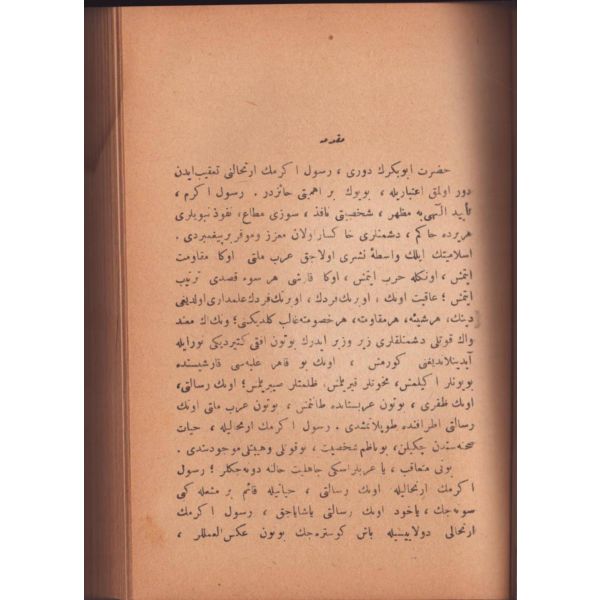 مقدمه
حضرت ابوبكرك دورى ، رسول اكرمك ارتحالنى تعقيب ايدن
دور اولمق اعتباريله ، بويوك بر اهميتى حائزدر . رسول اكرم ،
تأييد الٓهى‌يه مظهر ، شخصيتى نافذ ، سوزى مطاع ، نفوذ نبويلرى
هريرده حاكم ، دشمنلرى خاكسار اولان معزز وموقر بر پيغمبردى .
اسلاميتك ايلك واسطهٔ نشرى اولاجق عرب ملتى اوكا مقاومت
ايتمش ، اونكله حرب ايتمش ، اوكا قارشى هر سوء قصدى ترتيب
ايتمش ؛ عاقبت اونك ، اوبرنك فردك ، اوبرنك فردك علمدارى اولديغى
دينك ، هرشيئه ، هرمقاومته ، هرخصومته غالب كلديكنى ؛ ونك اك معند
واك قوتلى دشمنلقلرى زير وزبر ايدرك بوتون افقى كتيرديكى نورايله
آيدينلانديغنى كورمش ، اونك بو قاهر غلبه‌سى قارشيسنده
بويونلر اكيلمش ، ظلمتلر سيريلمش ؛ اونك رسالتى ،
اونك ظفرى ، بوتون عربستانده طانمش ، بوتون عرب ملتى اونك
رسالتى اطرافنده طوپلانمشدى . رسول اكرمك ارتحاليله ، حيات
صحنه‌سندن چكيلن ، بوناظم شخصيت ، بوقوتلى وهيبتلى موجوديتدى .
بونى متعاقب ، يا عربلر اسكى جاهليت حالنه دونه‌جكلر ؛ رسول
اكرمك ارتحاليله اونك رسالتى ، حياتيله قائم بر مشعله كبى
سونه‌جك ، ياخود اونك رسالتى ياشاياجق ، رسول اكرمك
ارتحالى دولاييسيله باش كوستره‌جك بوتون عكس العمللر ،